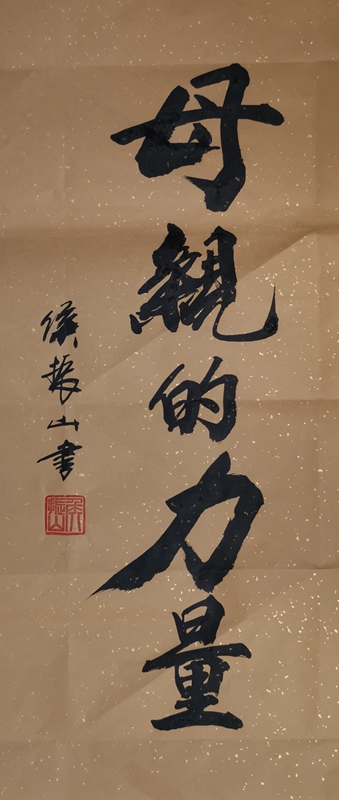 母親的力量
侯振山書